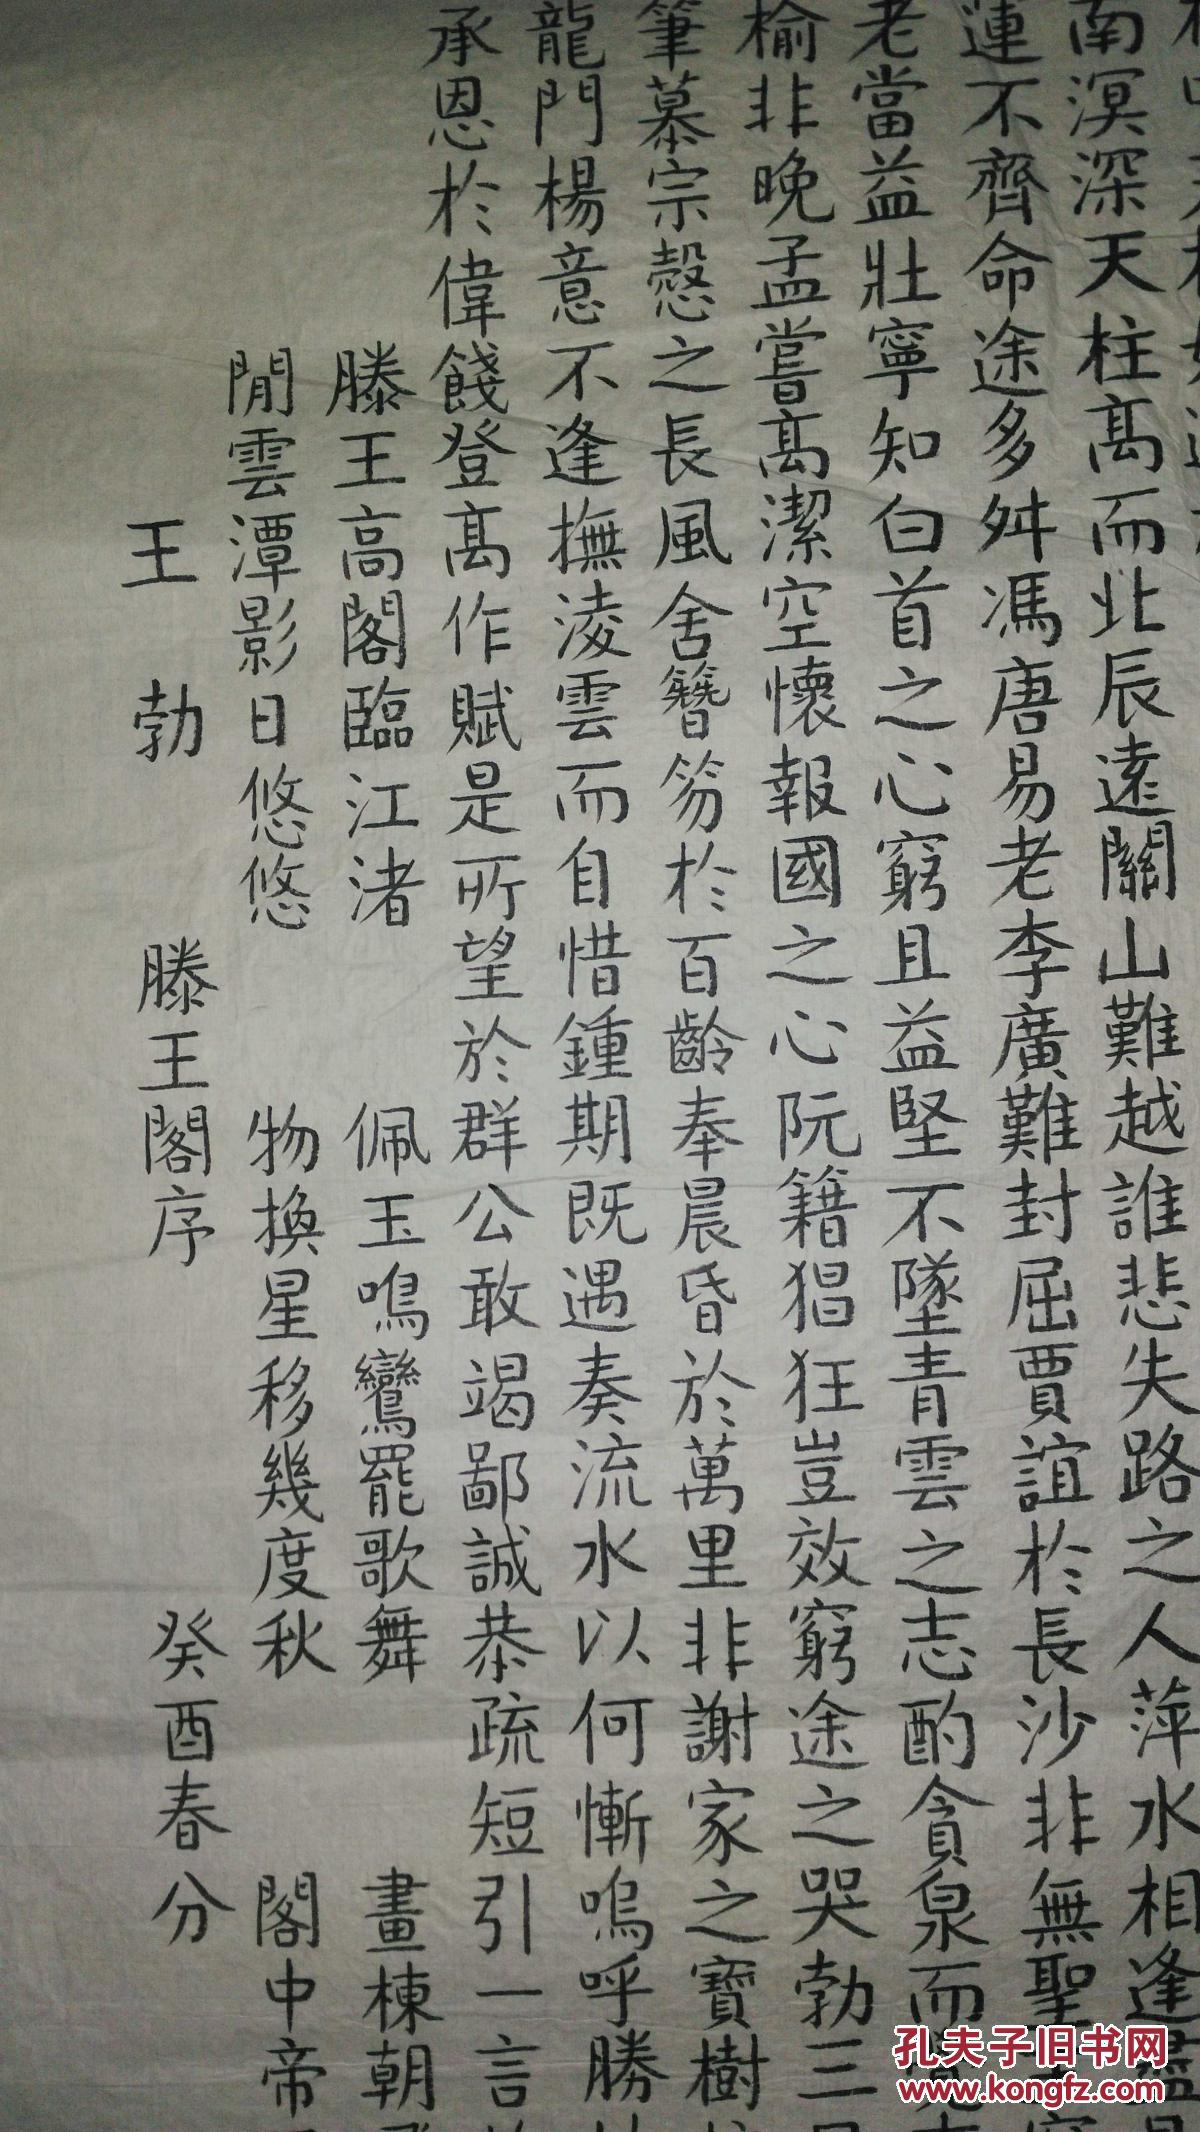 南溟深天柱高而北辰遠關山難越誰悲失路之人萍水相逢盡
蓮不齊命途多舛馮唐易老李廣難封屈賈誼於長沙非無聖
老當益壯寧知白首之心窮且益堅不墜青雲之志酌貪泉而覺
榆非晚孟嘗高潔空懷報國之心阮籍猖狂豈效窮途之哭勃三
筆慕宗慤之長風舍簪笏於百齡奉晨昏於萬里非謝家之寶樹
龍門楊意不逢撫淩雲而自惜鍾期既遇奏流水以何慚嗚呼勝
承恩於偉餞登高作賦是所望於群公敢竭鄙誠恭疏短引一言
滕王高閣臨江渚 佩玉鳴鸞罷歌舞 畫棟朝
閒雲潭影日悠悠 物換星移幾度秋 閣中帝
王勃 滕王閣序 癸酉春分
孔夫子旧书网
www.kongfz.com